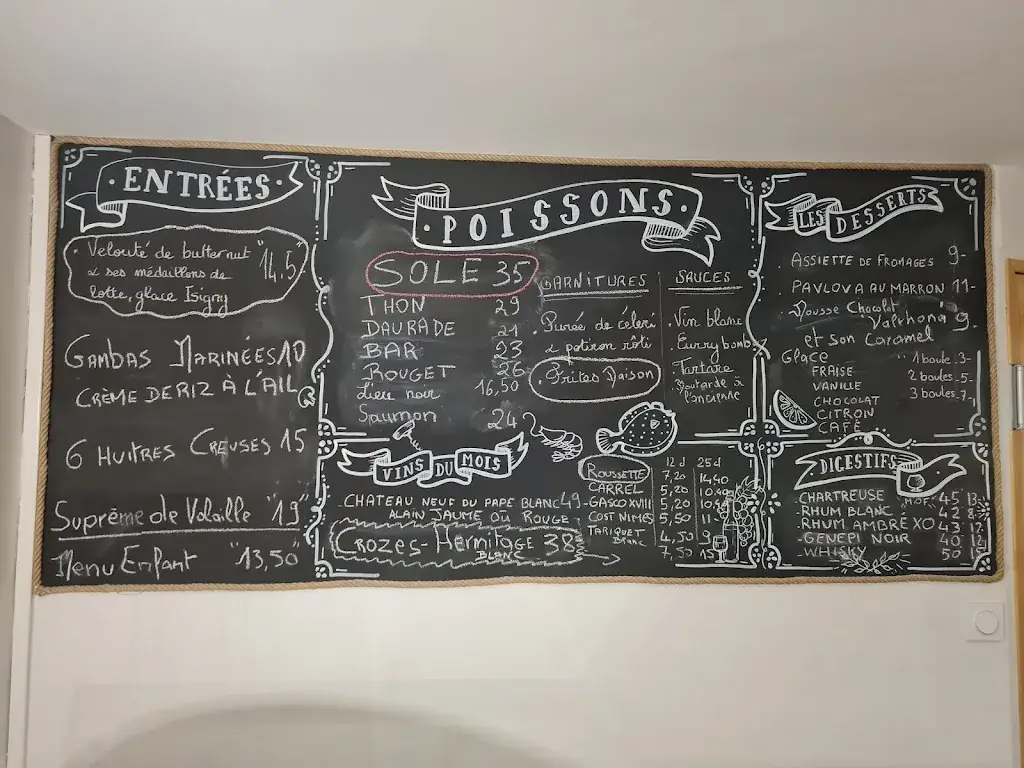 ENTRÉES
• Velouté de butternut "14,5"
& ses médaillons de
lotte, glace Isigny
GAMBAS MARINÉES 10
CRÈME DE RIZ À L'AIL
6 HUITRES CREUSES 15
Suprême de Volaille "19"
Menu Enfant "13,50"
POISSONS
SOLE 35
THON 29
DAURADE 21
BAR 23
ROUGET 26
Lieu noir 16,50
Saumon 24
GARNITURES
• Purée de céleri
& potiron rôti
• Frites Maison
SAUCES
• Vin blanc
• Curry
• Tartare
• Moutarde à
l'ancienne
VINS DU MOIS
- CHATEAU NEUF DU PAPE BLANC 49 -
ALAIN JAUME OU ROUGE
CROZES-HERMITAGE 38
BLANC
12 d 25 d
ROUSSETTE 7,20 14,40
CARREL 5,20 10,40
GASCO XVIII 5,20 10,40
COST NIMES 5,50 11-
TARIQUET 4,50 9
BLANC
7,50 15
LES DESSERTS
• ASSIETTE DE FROMAGES 9-
• PAVLOVA AU MARRON 11-
• Mousse Chocolat
Valrhona 9-
et son Caramel
Glace 1 boule 3-
FRAISE 2 boules 5-
VANILLE 3 boules 7-
CHOCOLAT
CITRON
CAFÉ
DIGESTIFS
- CHARTREUSE MOF 45° 13
- RHUM BLANC 42 8
- RHUM AMBRÉ XO 43 12
- GENEPI NOIR 40 12
- WHISKY 50